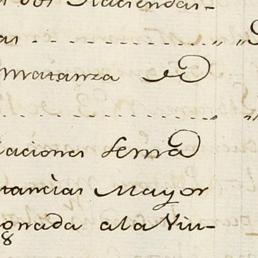 Haciendas-
as
matanza
raciones sema
tancias Mayor
onada a la Viu-
8